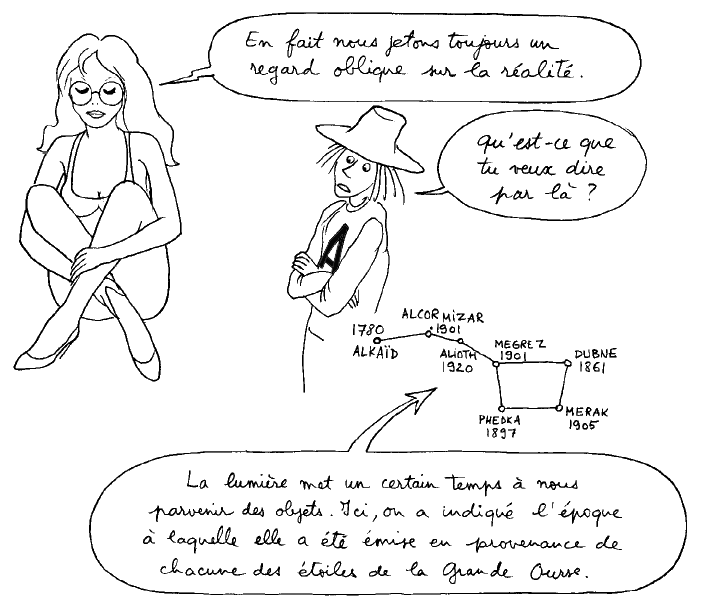 En fait nous jetons toujours un
regard oblique sur la réalité.
Qu'est-ce que
tu veux dire
par là ?
A
ALCOR MIZAR
1901
1780
ALKAÏD
ALIOTH
1920
MEGREZ
1901
DUBNE
1861
PHEDKA
1897
MERAK
1905
La lumière met un certain temps à nous
parvenir des objets. Ici, on a indiqué l'époque
à laquelle elle a été émise en provenance de
chacune des étoiles de la Grande Ourse.